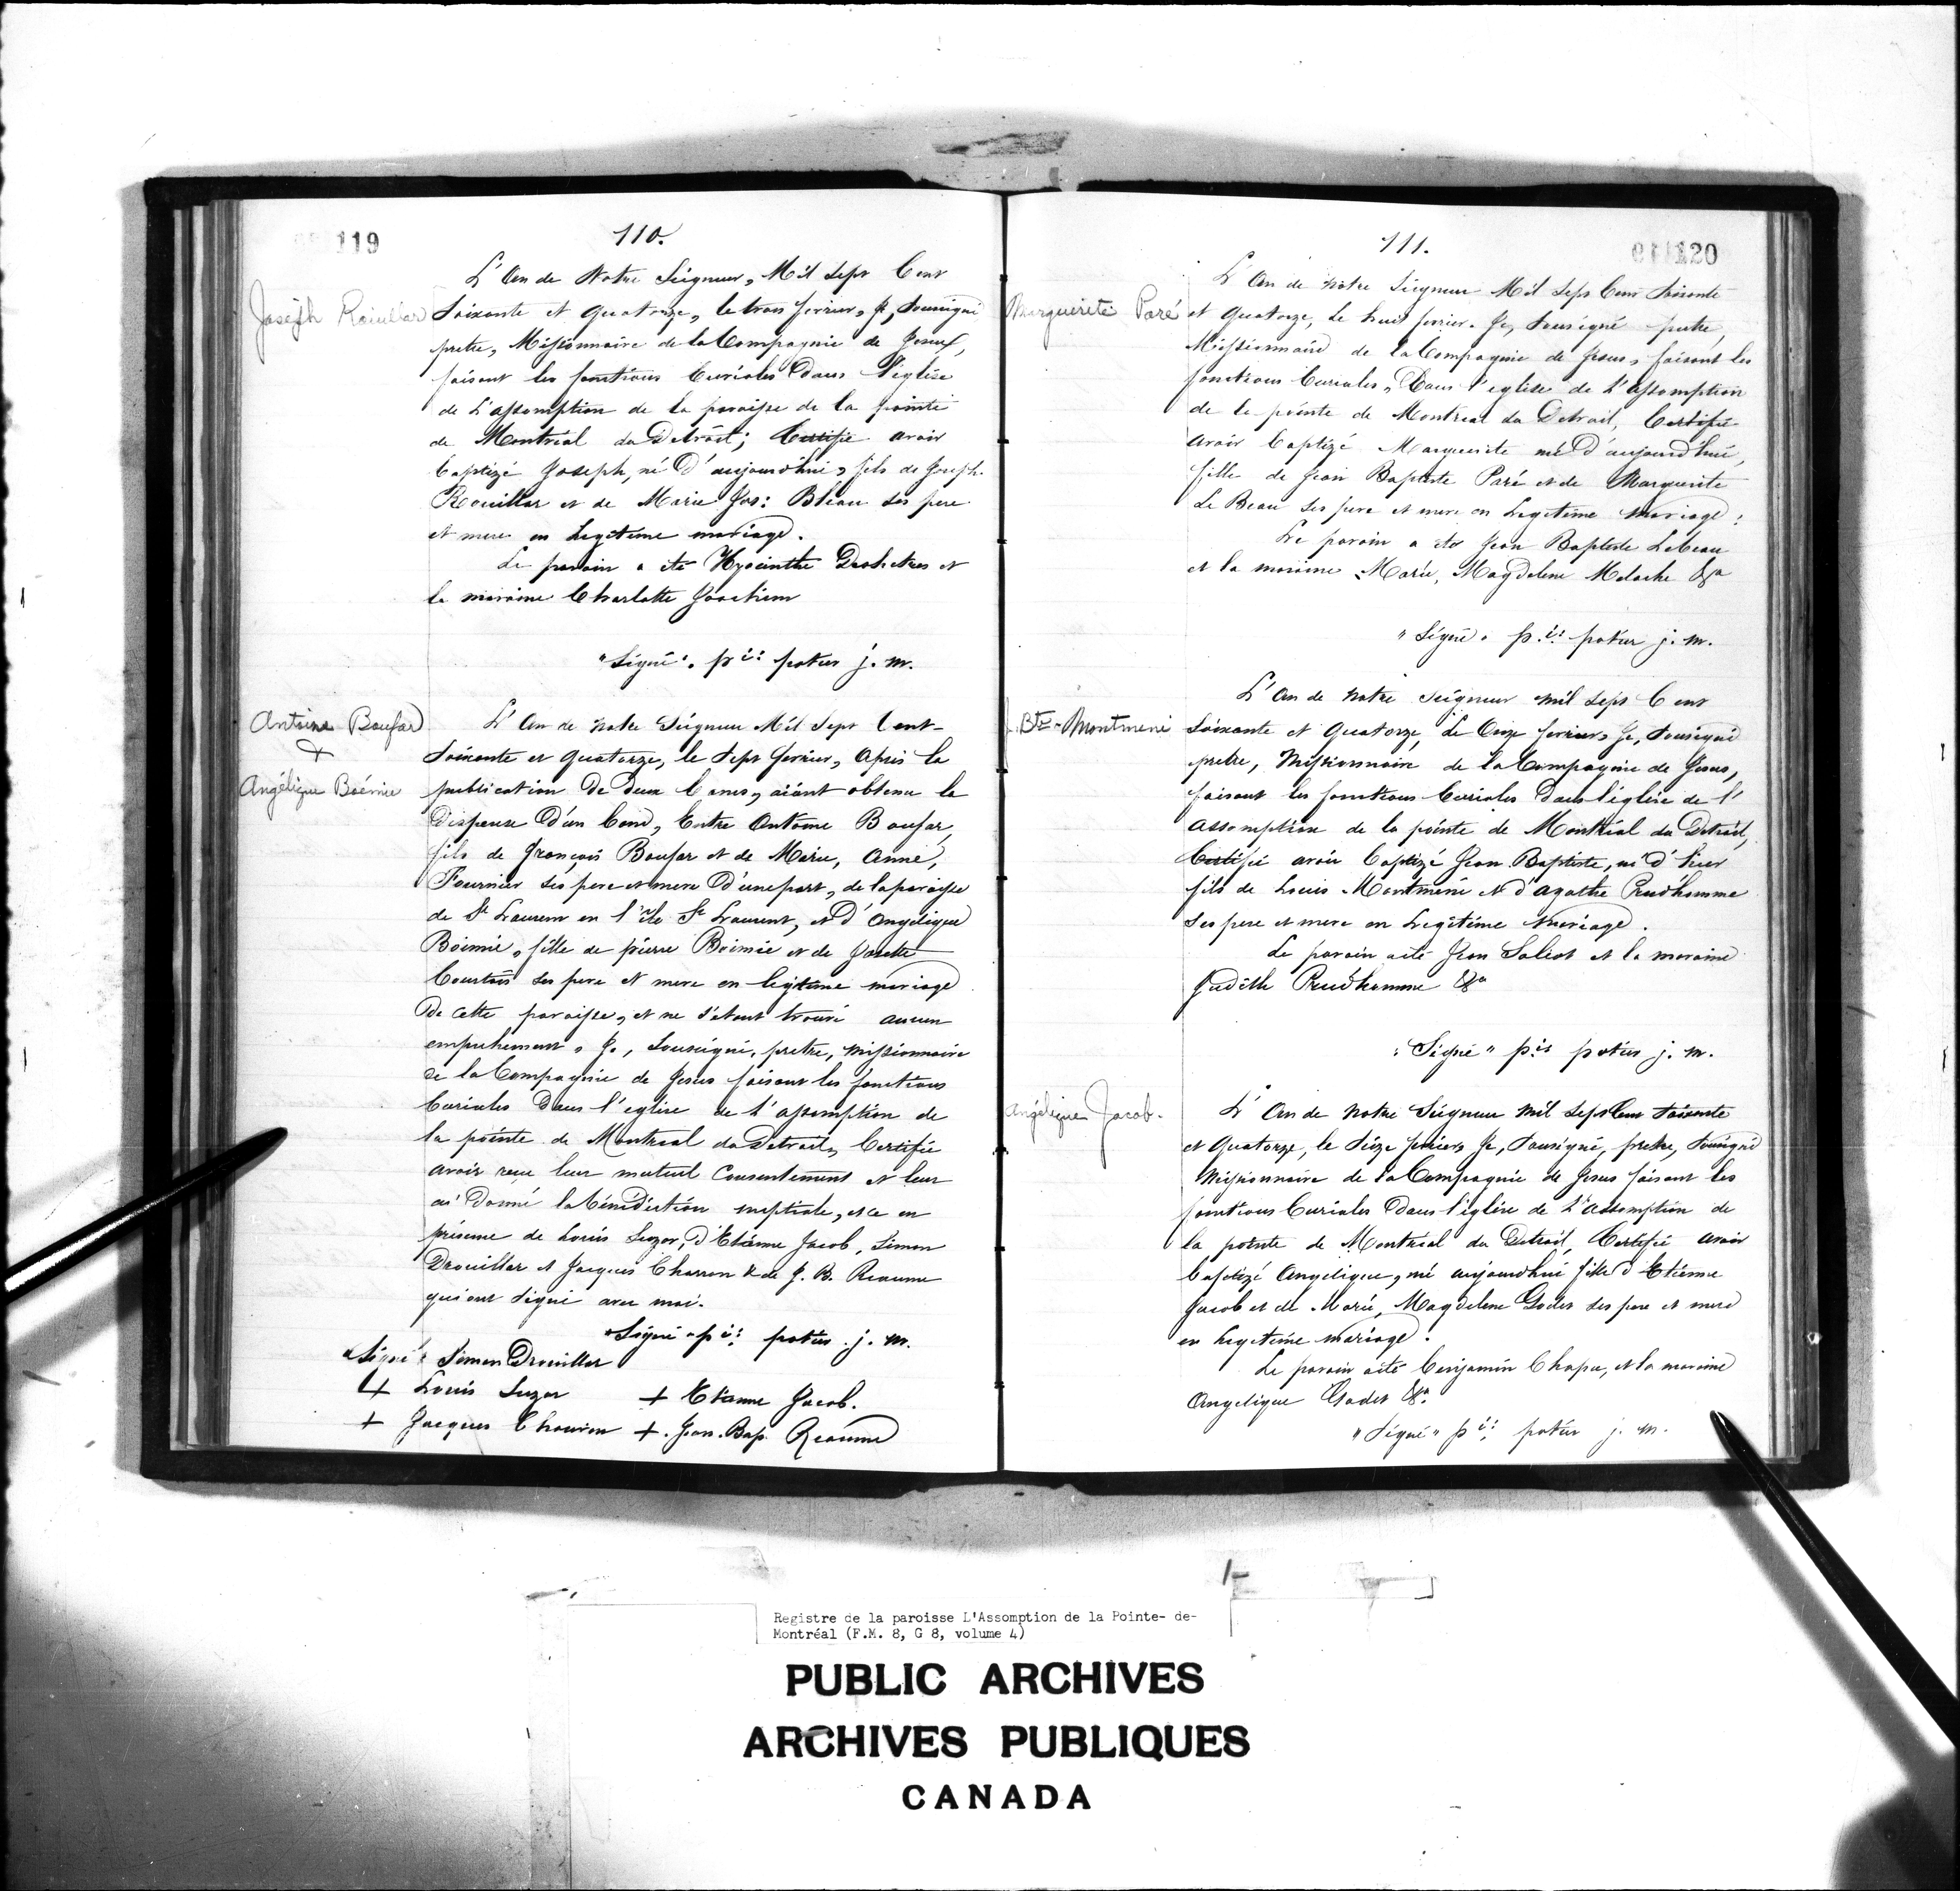 119
110.
Joseph Rouillar
L'An de Notre Seigneur, Mil Sept Cent
Soixante et Quatorze, le trois fevrier, Je, Soussigné
pretre, Missionnaire de la Compagnie de Jesus,
faisant les fonctions Curiales Dans l'église
de L'assomption de la paroisse de la pointe
de Montréal du Detroit; Certifie avoir
baptizé Joseph, né D'aujourd'hui, fils de Joseph
Rouillar et de Marie Jos: Bleau ses pere
et mere en Legitime mariage.
Le parain a été Hyacinthe Deshetres et
la maraine Charlotte Joachim
"Signé". pre: potier j. m.
Antoine Boufar
+
Angélique Boémie
L'An de Notre Seigneur Mil Sept Cent-
Soixante et Quatorze, le Sept fevrier, Après la
publication De deux bans, aiant obtenu la
Dispense D'un ban, Entre Antoine Boufar,
fils de François Boufar et de Marie, Anne,
Fournier ses pere et mere D'une part, de la paroisse
de St Laurent en l'ile St Laurent, et d'Angelique
Boimié, fille de pierre Boimié et de Josette
Courtois ses pere et mere en legitime mariage
De cette paroisse, et ne s'etant trouvé aucun
empechement, Je, Soussigné, pretre, Missionnaire
de la Compagnie de Jesus faisant les fonctions
Curiales Dans l'eglise de L'assomption de
la pointe de Montreal du Detroit, Certifie
avoir reçu leur mutuel Consentement et leur
ai Donné la bénédiction nuptiale, et ce en
présence de Louis Suzor, D'Etienne Jacob, Simon
Drouillar et Jacques Charron & de J. B. Reaume
qui ont signé avec moi.
"Signé" pre: potier j. m.
"Signé" Simon Drouillar
+ Louis Suzor + Etienne Jacob.
+ Jacques Charron +. Jean. Bap. Reaume
111.
120
Marguerite Paré
L'An de Notre Seigneur Mil Sept Cent Soixante
et Quatorze, Le huit fevrier. Je, Soussigné pretre,
Missionnaire de la Compagnie de Jesus, faisant les
fonctions Curiales, Dans l'eglise de L'Assomption
de la pointe de Montreal du Detroit, Certifie
avoir baptizé Marguerite né D'aujourd'hui,
fille de Jean Baptiste Paré et de Marguerite
Le Beau ses pere et mere en Legitime Mariage:
Le parain a été Jean Baptiste Lebeau
et la maraine Marie, Magdelene Meloche &a
"Signé". pre: potier j. m.
J. Bte- Montmeni
L'An de Notre Seigneur mil Sept Cent
Soixante et Quatorze, Le Onze fevrier, Je, Soussigné
pretre, Missionnaire de la Compagnie de Jesus,
faisant les fonctions Curiales Dans l'église de l'
Assomption de la pointe de Montréal du Detroit,
Certifie avoir baptizé Jean Baptiste, né D'hier
fils de Louis Montmeni et d'agathe Prudhomme
ses pere et mere en Legitime Mariage.
Le parain a été Jean Saliot et la maraine
Judith Prudhomme &a
"Signé" pre potier j. m.
Angélique Jacob.
L'An de Notre Seigneur Mil Sept Cent Soixante
et Quatorze, le Sieze fevrier, Je, Soussigné, pretre, Soussigné
Missionnaire de la Compagnie de Jesus faisant les
fonctions Curiales Dans l'église de L'Assomption de
la pointe de Montreal du Detroit, Certifie avoir
baptizé Angelique, né aujourdhui fille d'Etienne
Jacob et de Marie, Magdelene Godet ses pere et mere
en Legitime mariage.
Le parain a été Benjamin Chapu, et la maraine
Angelique Godet &a.
"Signé" pre: potier j. m.
Registre de la paroisse L'Assomption de la Pointe- de-
Montréal (F.M. 8, G 8, volume 4)
PUBLIC ARCHIVES
ARCHIVES PUBLIQUES
CANADA